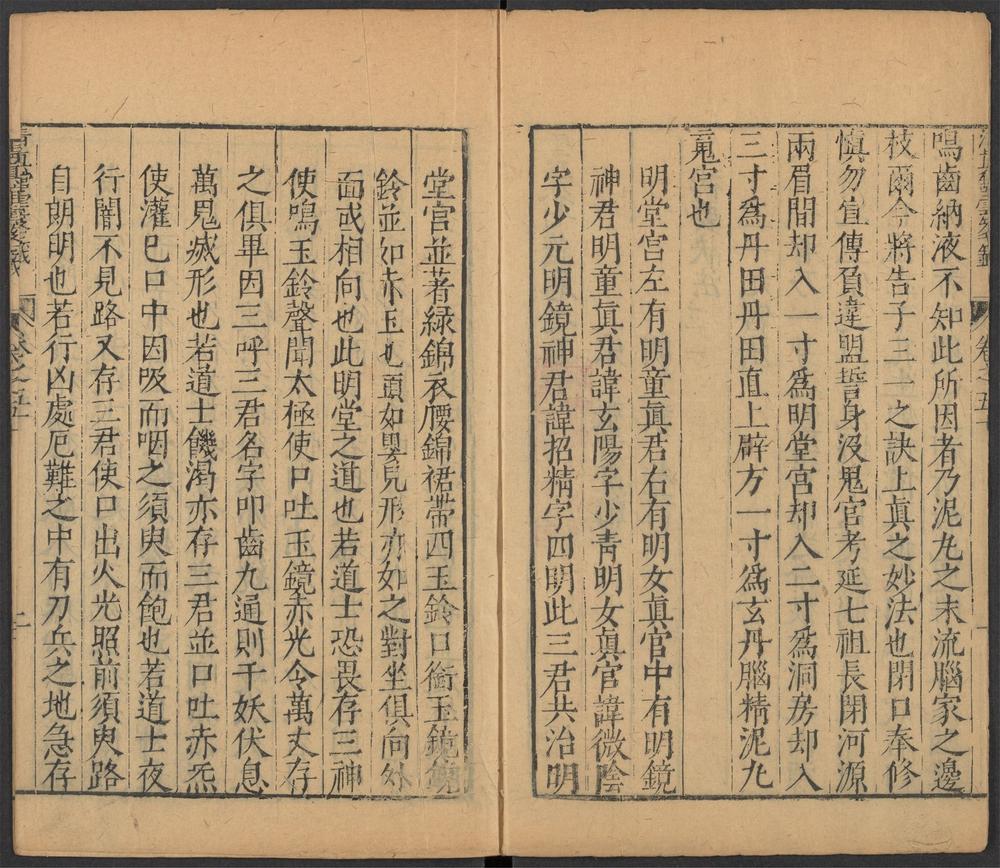 鳴齒納液不知此所因者乃泥丸之末流腦家之邊
枝爾今將告子三一之訣上眞之妙法也閉口奉修
愼勿宣傳負違盟誓身沒鬼官考延七祖長閉河源
兩眉間却入一寸爲明堂宮却入二寸爲洞房却入
三寸爲丹田丹田直上辟方一寸爲玄丹腦精泥丸
䰟宮也
明堂宮左有明童眞君右有明女眞官中有明鏡
神君明童眞君諱玄陽字少青明女眞官諱微陰
字少元明鏡神君諱招精字四明此三君共治明
堂宮並著綠錦衣腰錦裙帶四玉鈴口銜玉鏡鏡
鈴並如赤玉也頭如嬰兒形亦如之對坐俱向外
面或相向也此明堂之道也若道士恐畏存三神
使鳴玉鈴聲聞太極使口吐玉鏡赤光令萬丈存
之俱畢因三呼三君名字叩齒九通則千妖伏息
萬鬼滅形也若道士饑渴亦存三君並口吐赤炁
使灌已口中因吸而咽之須臾而飽也若道士夜
行闇不見路又存三君使口出火光照前須臾路
自朗明也若行凶處厄難之中有刀兵之地急存
卷之五十
二